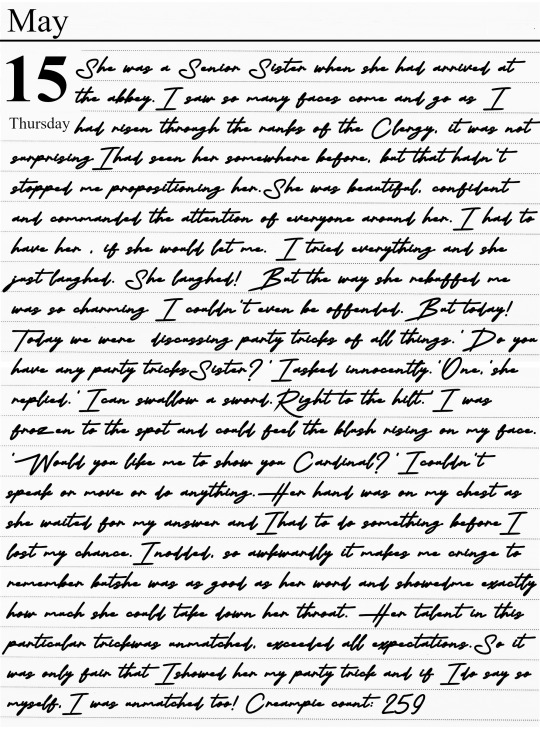 May
15 She was a Senior Sister when she had arrived at
the abbey. I saw so many faces come and go as I
Thursday had risen through the ranks of the Clergy, it was not
surprising Ihad seen her somewhere before, but that hadn't
stopped me propositioning her. She was beautiful, confident
and commanded the attention of everyone around her. I had to
have her , if she would let me. I tried everything and she
just laughed. She laughed! But the way she rebuffed me
was so charming I couldn't even be offended. But today!
Today we were discussing party tricks of all things.' Do you
have any party tricks Sister?' Iasked innocently.'One,'she
replied.' Ican swallow a sword. Right to the hilt.' I was
frozen to the spot and could feel the blush rising on my face.
'Would you like me to show you Cardinal?' Icouldn't
speak or move or do anything. Her hand was on my chest as
she waited for my answer and Ihad to do something before I
lost my chance. Inodded, so awkwardly it makes me cringe to
remember butshe was as good as her word and showedme exactly
how much she could take down her throat. Her talent in this
particular trickwas unmatched, exceeded all expectations. So it
was only fair that Ishowed her my party trick and if Ido say so
myself, I was unmatched too! Creampie count: 259